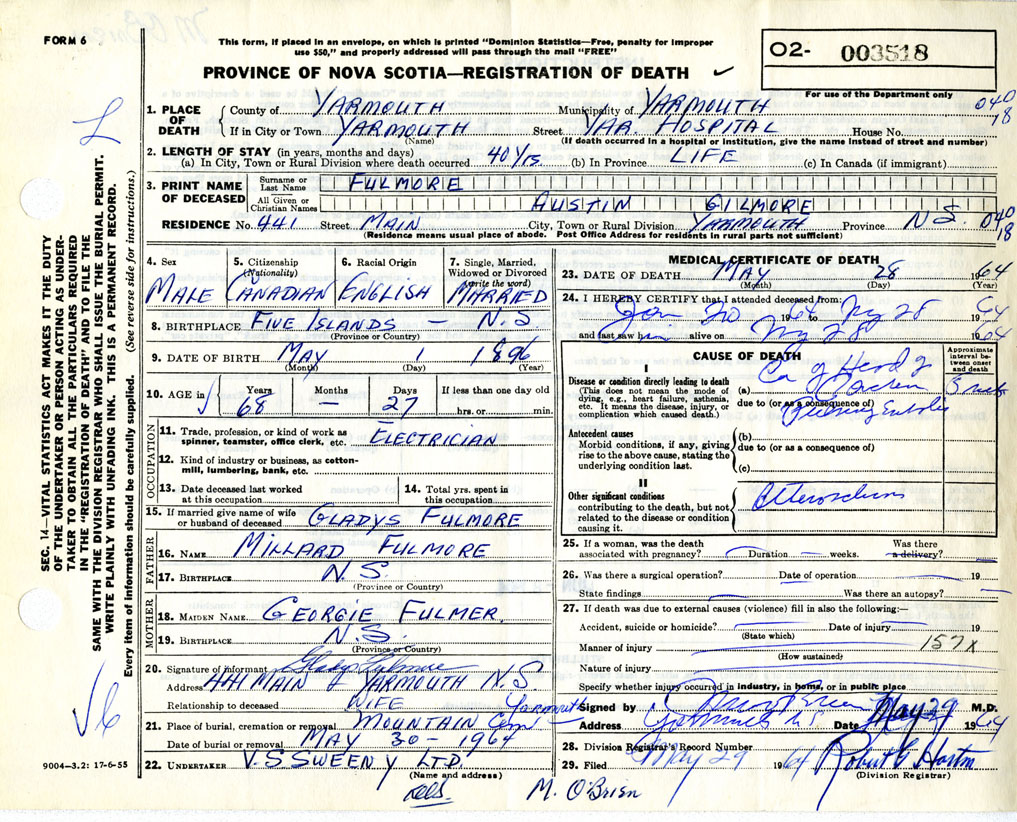 FORM 6
This form, if placed in an envelope, on which is printed "Dominion Statistics—Free, penalty for improper
use $50," and properly addressed will pass through the mail "FREE"
PROVINCE OF NOVA SCOTIA—REGISTRATION OF DEATH ✓
O2- 003518
For use of the Department only
1. PLACE OF DEATH
County of YARMOUTH Municipality of YARMOUTH 040
18
If in City or Town YARMOUTH Street YAR. HOSPITAL House No.
(Name) (If death occurred in a hospital or institution, give the name instead of street and number)
2. LENGTH OF STAY (in years, months and days)
(a) In City, Town or Rural Division where death occurred 40 Yrs (b) In Province LIFE (c) In Canada (if immigrant)
3. PRINT NAME OF DECEASED
Surname or Last Name FULMORE
All Given or Christian Names AUSTIN GILMORE
RESIDENCE No. 441 Street MAIN City, Town or Rural Division YARMOUTH Province N.S. 040
18
(Residence means usual place of abode. Post Office Address for residents in rural parts not sufficient)
4. Sex
MALE
5. Citizenship (Nationality)
CANADIAN
6. Racial Origin
ENGLISH
7. Single, Married, Widowed or Divorced (write the word)
MARRIED
8. BIRTHPLACE FIVE ISLANDS – N.S.
(Province or Country)
9. DATE OF BIRTH MAY 1 1896
(Month) (Day) (Year)
10. AGE in Years 68 Months — Days 27 If less than one day old
hrs. or min.
OCCUPATION
11. Trade, profession, or kind of work as
spinner, teamster, office clerk, etc. ELECTRICIAN
12. Kind of industry or business, as cotton-
mill, lumbering, bank, etc.
13. Date deceased last worked
at this occupation
14. Total yrs. spent in
this occupation
15. If married give name of wife
or husband of deceased GLADYS FULMORE
FATHER
16. NAME MILLARD FULMORE
17. BIRTHPLACE N.S.
(Province or Country)
MOTHER
18. MAIDEN NAME GEORGIE FULMER
19. BIRTHPLACE N.S.
(Province or Country)
20. Signature of informant Gladys Fulmore
Address 441 MAIN YARMOUTH N.S.
Relationship to deceased WIFE
21. Place of burial, cremation or removal MOUNTAIN Cem Yarmouth
Date of burial or removal MAY 30 - 1964
22. UNDERTAKER V.S SWEENY LTD
(Name and address)
MEDICAL CERTIFICATE OF DEATH
23. DATE OF DEATH MAY 28 1964
(Month) (Day) (Year)
24. I HEREBY CERTIFY that I attended deceased from:
Jan 1964 to My 28 1964
and last saw him alive on My 28 1964
CAUSE OF DEATH
Approximate interval between onset and death
I
Disease or condition directly leading to death
(This does not mean the mode of
dying, e.g., heart failure, asthenia,
etc. It means the disease, injury, or
complication which caused death.)
(a) Ca of Head of
due to (or as a consequence of)
Antecedent causes
Morbid conditions, if any, giving
rise to the above cause, stating the
underlying condition last.
(b)
due to (or as a consequence of)
(c)
II
Other significant conditions
contributing to the death, but not
related to the disease or condition
causing it.
25. If a woman, was the death
associated with pregnancy? Duration weeks. Was there
a delivery?
26. Was there a surgical operation? Date of operation 19
State findings Was there an autopsy?
27. If death was due to external causes (violence) fill in also the following:—
Accident, suicide or homicide? Date of injury 19
(State which)
Manner of injury 157X
(How sustained)
Nature of injury
Specify whether injury occurred in industry, in home, or in public place
Signed by M.D.
Address Date May 29 1964
28. Division Registrar's Record Number
29. Filed May 29 1964 Robert G Horton
(Division Registrar)
9004—3.2: 17-6-55
M. O'Brien
SEC. 14—VITAL STATISTICS ACT MAKES IT THE DUTY
OF THE UNDERTAKER OR PERSON ACTING AS UNDER-
TAKER TO OBTAIN ALL THE PARTICULARS REQUIRED
IN THE "REGISTRATION OF DEATH" AND TO FILE THE
SAME WITH THE DIVISION REGISTRAR WHO SHALL ISSUE THE BURIAL PERMIT.
WRITE PLAINLY WITH UNFADING INK. THIS IS A PERMANENT RECORD.
Every item of information should be carefully supplied. (See reverse side for instructions.)